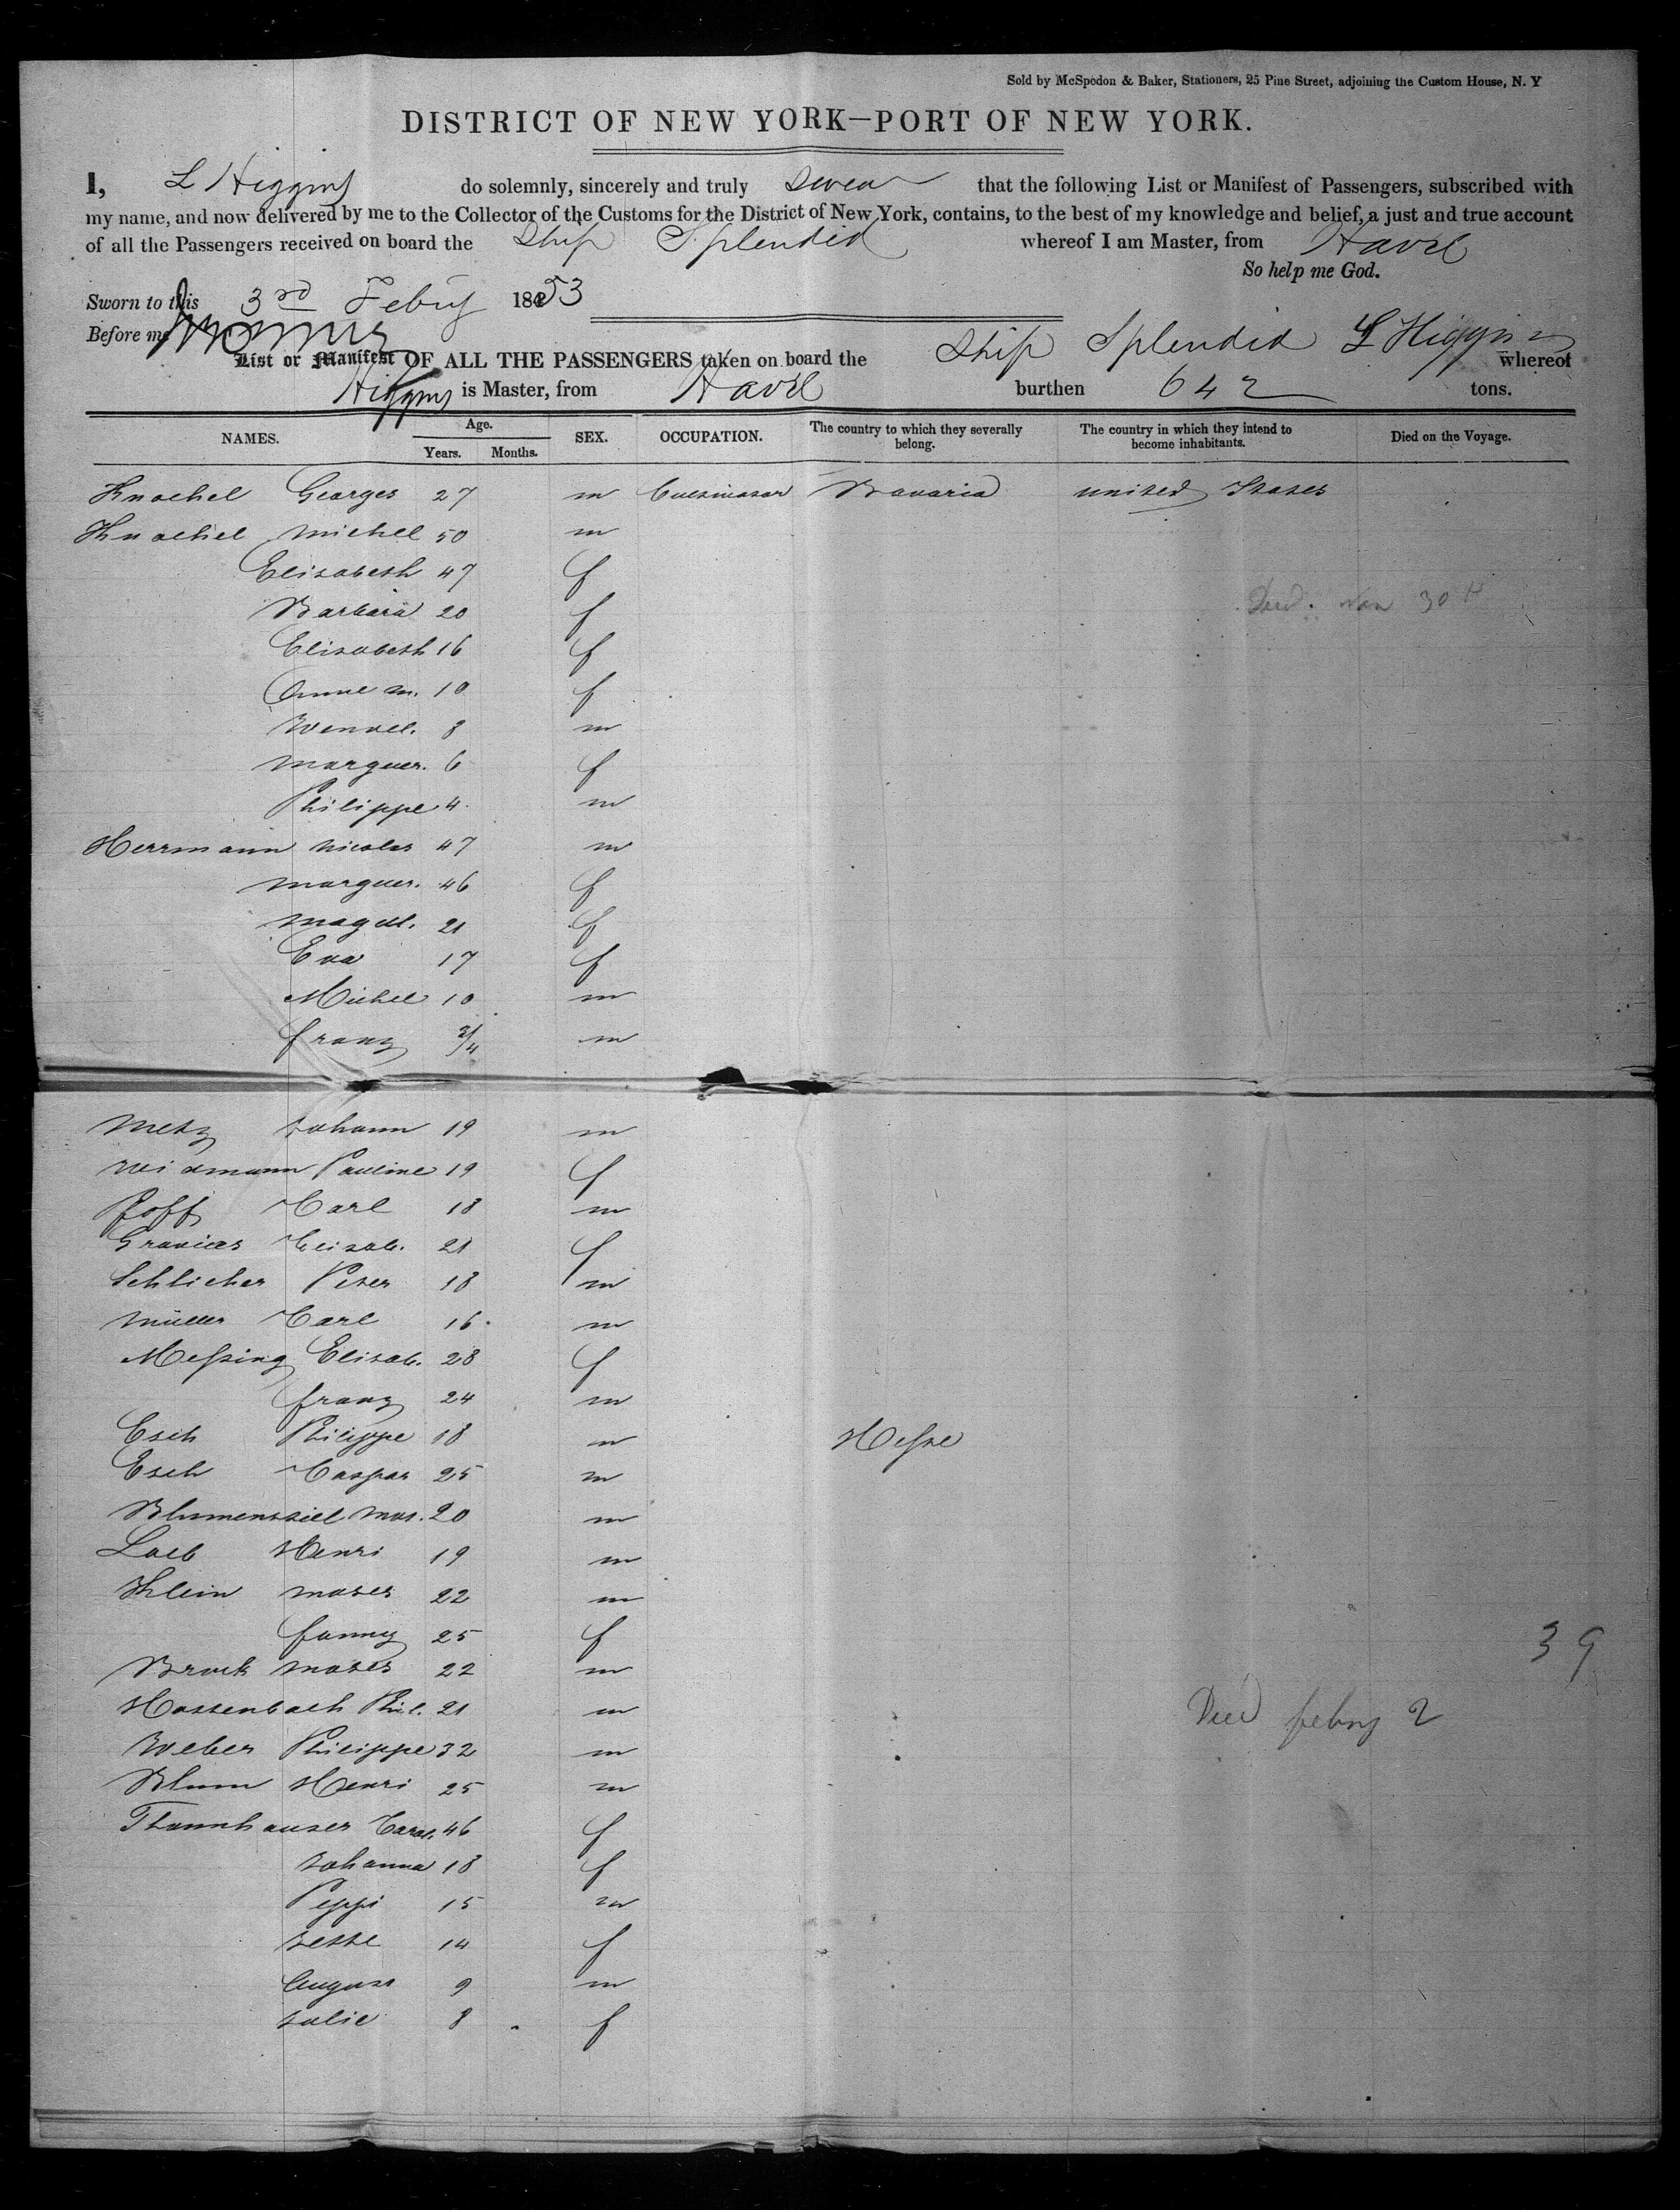 Sold by McSpedon & Baker, Stationers, 25 Pine Street, adjoining the Custom House, N. Y
DISTRICT OF NEW YORK—PORT OF NEW YORK.
I, L Higgins do solemnly, sincerely and truly swear that the following List or Manifest of Passengers, subscribed with
my name, and now delivered by me to the Collector of the Customs for the District of New York, contains, to the best of my knowledge and belief, a just and true account
of all the Passengers received on board the Ship Splendid whereof I am Master, from Havre
So help me God.
Sworn to this 3rd Febry 1853
Before me
List or Manifest OF ALL THE PASSENGERS taken on board the Ship Splendid L Higgins whereof
Higgins is Master, from Havre burthen 642 tons.
NAMES. Age. Years. Months. SEX. OCCUPATION. The country to which they severally belong. The country in which they intend to become inhabitants. Died on the Voyage.
Knochel Georges 27 m Cultivator Bavaria united States
Knochel Michel 50 m
Elisabeth 47 f
Barbara 20 f Died. 30th
Elisabeth 16 f
Anne m. 10 f
Wendel. 8 m
Marguer. 6 f
Philippe 4. m
Herrmann Nicolas 47 m
Marguer. 46 f
Magdl. 21 f
Eva 17 f
Michel 10 m
franz 3/4 m
Metz Johann 19 m
Weidmann Pauline 19 f
Poff Carl 18 m
Elisab. 21 f
Schlicher Peter 18 m
Müller Carl 16. m
Meſsing Elisab. 28 f
franz 24 m
Esch Philippe 18 m Heſse
Esch Caspar 25 m
Blumenstiel Mos. 20 m
Loeb Henri 19 m
Klein Moses 22 m
fanny 25 f 39
Bruck Moses 22 m
Hossenbach Phil. 21 m Died febry 2
Weber Philippe 32 m
Blum Henri 25 m
Thannhauser Carol. 46 f
Johanna 18 f
Peppi 15 m
Jette 14 f
August 9 m
Julie 8 f